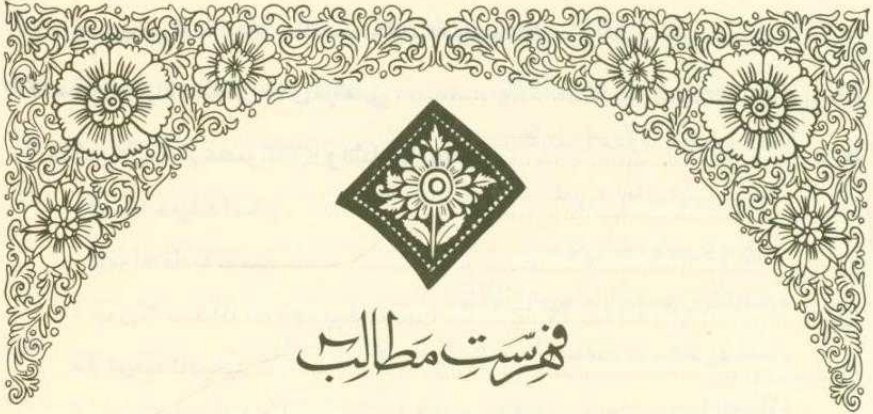 فهرستِ مَطالِب